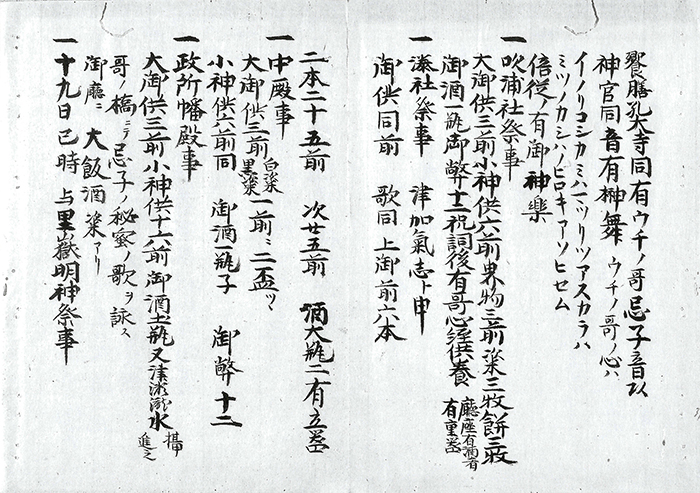 饗膳孔大寺同有ウチノ哥忌子音以
神官同音有榊舞 ウチノ哥ノ心ハ
イノリコシカミハマツリツアスカラハ
ミツノカシハノヒロキアソヒセム
倍従ノ有御神樂
一 吹浦社祭事
大御供三前小神供六前界物三前染三牧餅三牧
御酒一瓶御幣十二祝詞後有哥心経供養
一 湊社祭事 津加氣志ト申
御供同前 歌同 上御前六本
二本二十五前 次廿五前 酒大瓶二有立
一 中殿事
大御供三前 白染 黒染 一前ニ二盃ツヽ
小神供六前同 御酒一瓶子 御幣十二
一 政所幡殿事
大御供三前小神供十六前御酒土瓶又 水
哥ノ橋ニテ忌子ノ秘蜜ノ歌ヲ詠ス
御廳ニ 大飯酒染アリ
一 十九日 巳時 与里嶽明神祭事